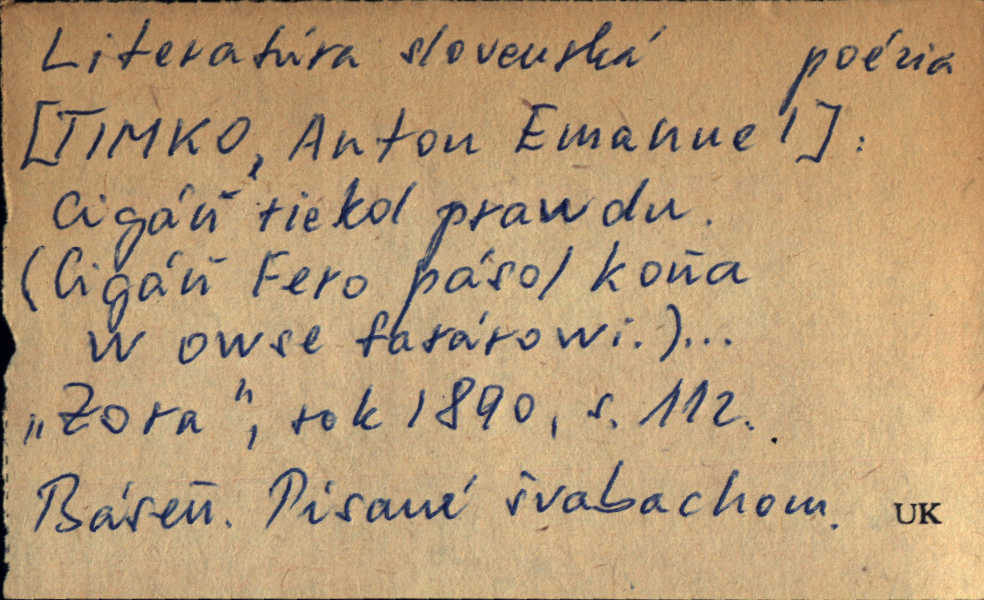 Literatúra slovenská poézia
[TIMKO, Anton Emanuel]:
Cigáň riekol prawdu.
(Cigáň Fero pásol koňa
w owse farárowi.)...
„Zora", rok 1890, s. 112.
Báseň. Písané švabachom. UK